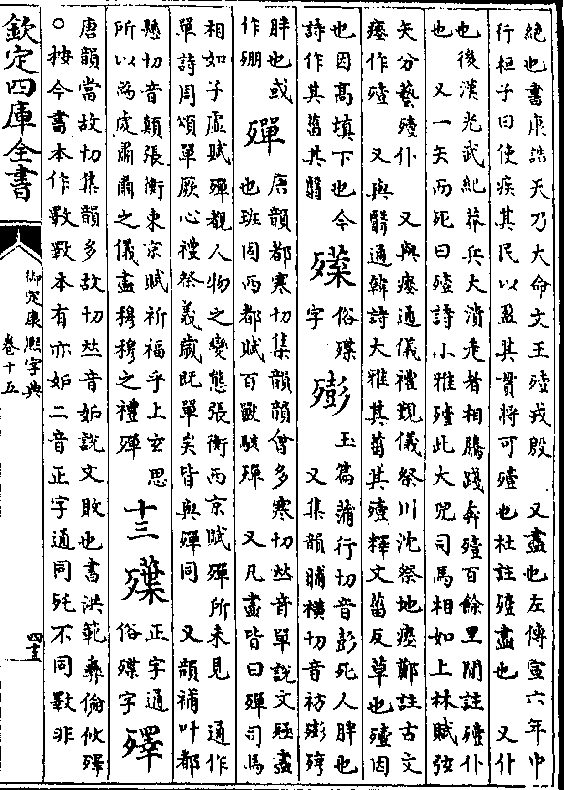 絶也書康誥天乃大命文王殪戎殷　又盡也左傳宣六年中
行桓子曰使疾其民以盈其貫將可殪也杜註殪盡也　又仆
也後漢光武紀莽兵大潰走者相騰踐奔殪百餘里間註殪仆
也　又一矢而死曰殪詩小雅殪此大兕司馬相如上林賦弦
矢分藝殪仆　又與瘞通儀禮覲儀祭川沈祭地瘞鄭註古文
瘞作殪　又與翳通韓詩大雅其菑其殪釋文菑反草也殪因
也因髙填下也今
詩作其菑其翳
俗殜
字
玉篇蒲行切音彭死人胖也
又集韻晡横切音祊
胖也或
作
殫
唐韻都寒切集韻韻會多寒切𠀤音單說文殛盡
也班固西都賦百獸駭殫　又凡盡皆曰殫司馬
相如子虛賦殫覩人物之變態張衡西京賦殫所未見　通作
單詩周頌單厥心禮祭義歲既單矣皆與殫同　又韻補叶都
懸切音顛張衡東京賦祈福乎上玄思
所以為虔肅肅之儀盡穆穆之禮殫
十三
正字通
俗殜字
殬
唐韻當故切集韻多故切𠀤音妒說文敗也書洪範彝倫攸殬
○按今書本作斁斁本有亦妒二音正字通同㱙不同斁非
欽定四庫全書
御定康熙字典
卷十五